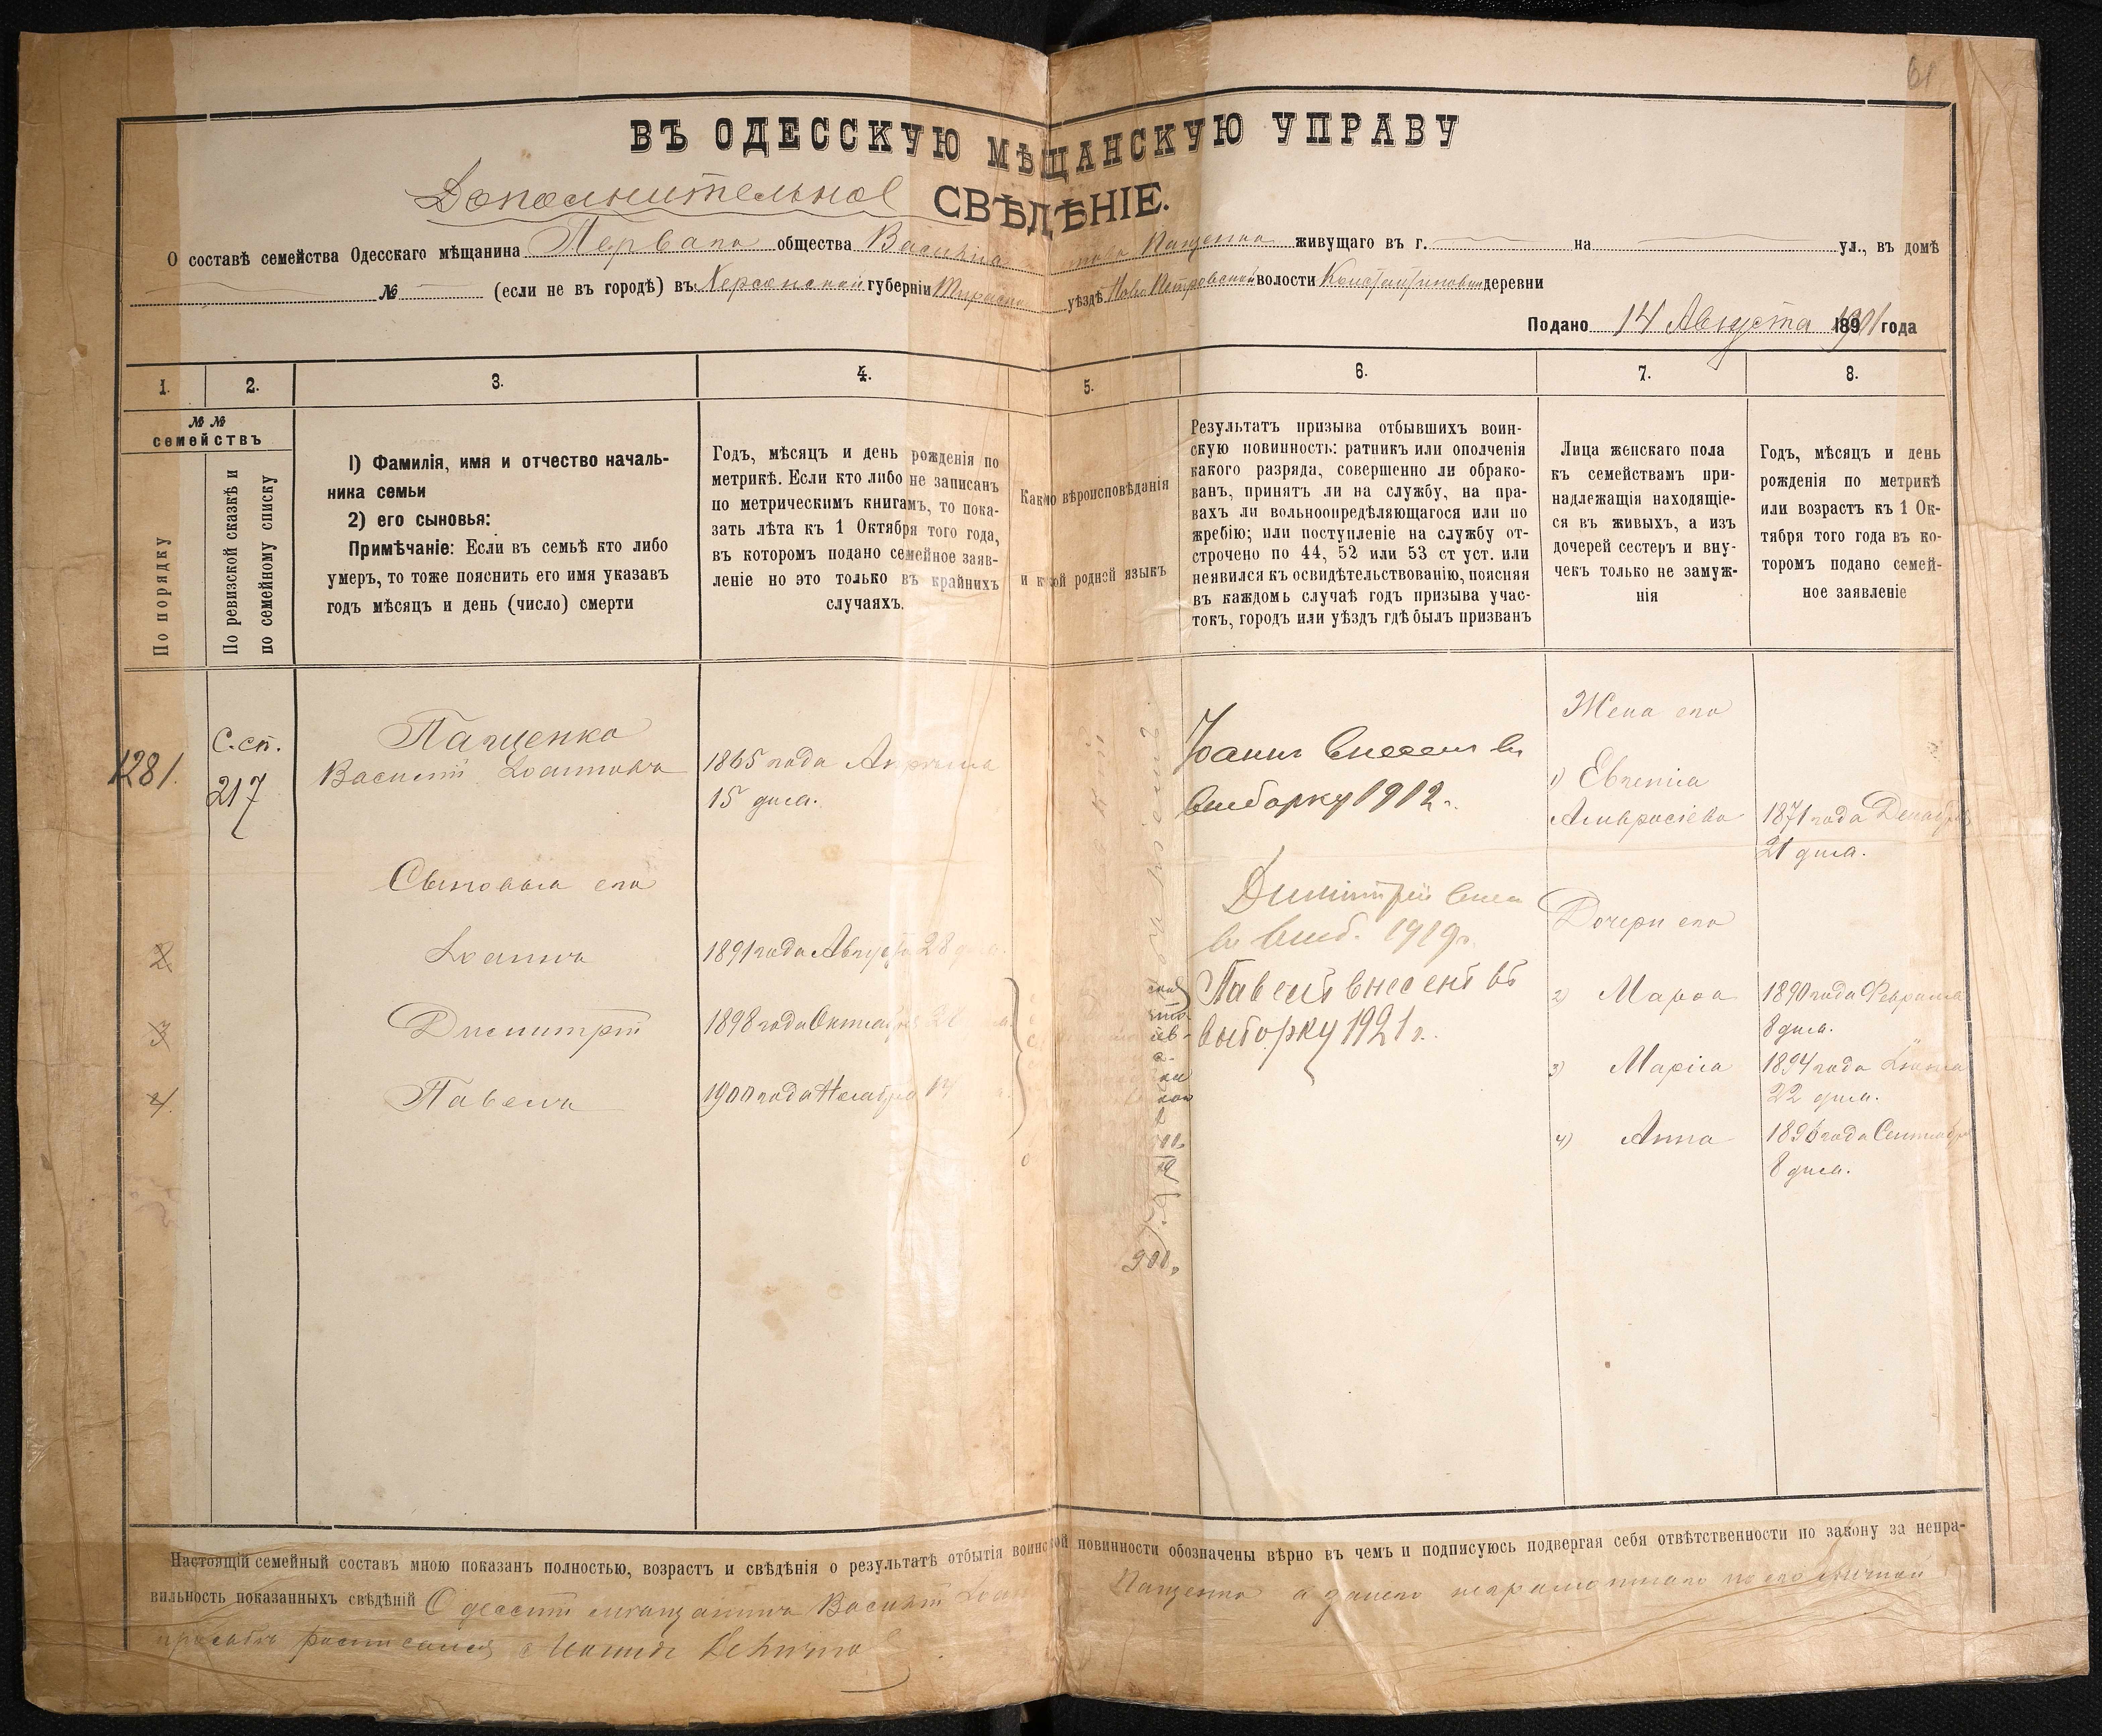 61
ВЪ ОДЕССКУЮ МѢЩАНСКУЮ УПРАВУ
Дополнительное СВѢДѢНІЕ.
О составѣ семейства Одесскаго мѣщанина Перваго общества Василія Пащенко живущаго въ г. на ул., въ домѣ
№ (если не въ городѣ) въ Херсонской губерніи уѣздѣ Ново Петровской волости деревни
Подано 14 Августа 1901 года
1. 2. 3. 4. 5. 6. 7. 8.
№ №
семействъ
По порядку
По ревизской сказкѣ и
по семейному списку
1) Фамилія, имя и отчество началь-
ника семьи
2) его сыновья:
Примѣчаніе: Если въ семьѣ кто либо
умеръ, то тоже пояснить его имя указавъ
годъ мѣсяцъ и день (число) смерти
Годъ, мѣсяцъ и день рожденія по
метрикѣ. Если кто либо не записанъ
по метрическимъ книгамъ, то пока-
зать лѣта къ 1 Октября того года,
въ которомъ подано семейное заяв-
леніе но это только въ крайнихъ
случаяхъ.
Какого вѣроисповѣданія
и какой родной языкъ
Результатъ призыва отбывшихъ воин-
скую повинность: ратникъ или ополченія
какого разряда, совершенно ли обрако-
ванъ, принятъ ли на службу, на пра-
вахъ ли вольноопредѣляющагося или по
жребію; или поступленіе на службу от-
строчено по 44, 52 или 53 ст уст. или
неявился къ освидѣтельствованію, поясняя
въ каждомъ случаѣ годъ призыва учас-
токъ, городъ или уѣздъ гдѣ былъ призванъ
Лица женскаго пола
къ семействамъ при-
надлежащія находящіе-
ся въ живыхъ, а изъ
дочерей сестеръ и вну-
чекъ только не замуж-
нія
Годъ, мѣсяцъ и день
рожденія по метрикѣ
или возрастъ къ 1 Ок-
тября того года въ ко-
торомъ подано семей-
ное заявленіе
1281.
С.сп.
217
Пащенко
Василій Іоанновъ
1865 года Апрѣля
15 дня.
Іоаннъ внесенъ въ
выборку 1912 г.
Жена его
1) Евгенія
Амвросіева
1871 года Декабря
21 дня.
Сыновья его
Димитрій внесен
въ выб. 1919 г.
Дочери его
2 Іоаннъ 1891 года Августа 28 дня.
Павелъ внесенъ въ
выборку 1921 г.
2) Марѳа 1890 года Февраля
8 дня.
3 Димитрій 1898 года Октября
3) Марія 1894 года
22 дня.
4 Павелъ 1900 года Ноября 14
4) Анна 1896 года Сентября
8 дня.
Настоящій семейный составъ мною показанъ полностью, возрастъ и свѣдѣнія о результатѣ отбытія воинской повинности обозначены вѣрно въ чемъ и подписуюсь подвергая себя отвѣтственности по закону за непра-
вильность показанныхъ свѣдѣній Одесскій мѣщанинъ Василій Пащенко а за него неграмотнаго по его личной
просьбѣ росписался